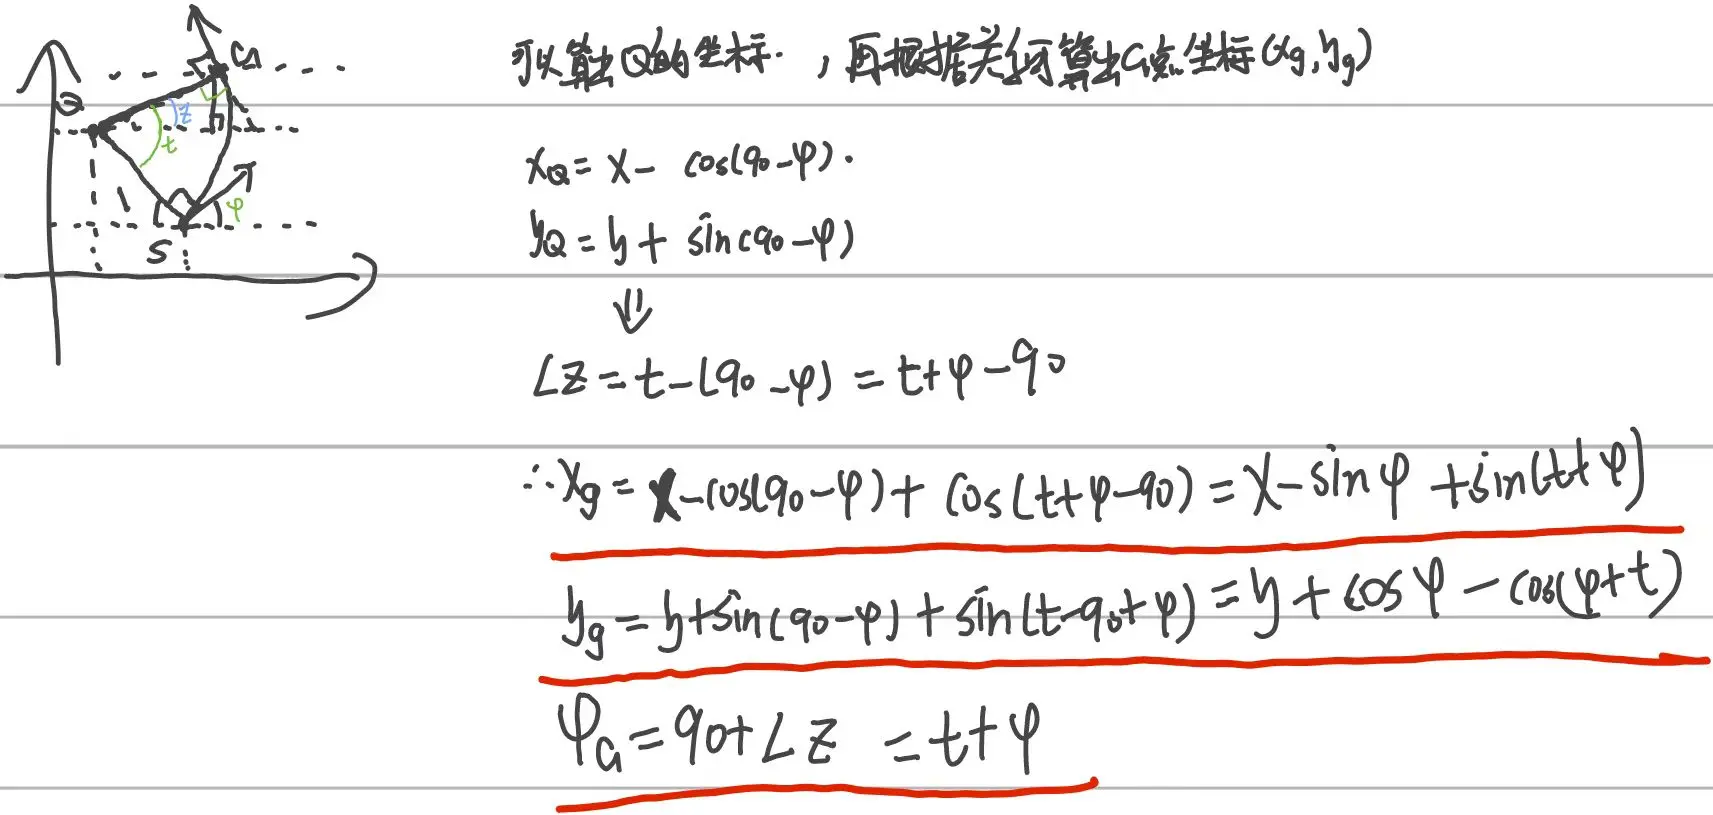 可以算出Q的坐标. ,再根据关系可算出G点坐标(xg,yg)
G
Q
z
t
1
φ
S
xQ = x - cos(90-φ).
yQ = y + sin(90-φ)
⇓
∠z = t-(90-φ) = t+φ-90
∴xg = x-cos(90-φ)+ cos(t+φ-90) = x-sinφ +sin(t+φ)
yg = y+sin(90-φ)+sin(t-90+φ) = y+cosφ-cos(φ+t)
φG = 90+∠z = t+φ